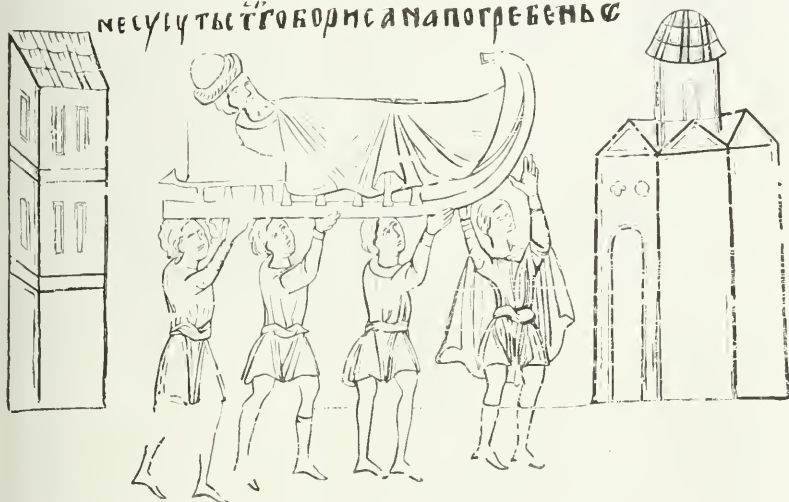 несусутьст҃гоборисанапогребеньє